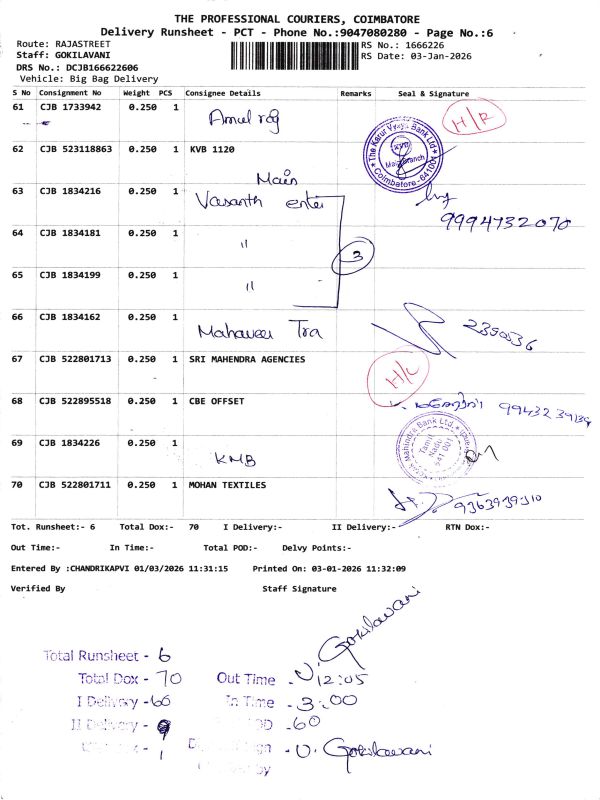 THE PROFESSIONAL COURIERS, COIMBATORE
Delivery Runsheet - PCT - Phone No.:9047080280 - Page No.:6
Route: RAJASTREET
RS No.: 1666226
Staff: GOKILAVANI
RS Date: 03-Jan-2026
DRS No.: DCJB166622606
Vehicle: Big Bag Delivery
S No Consignment No Weight PCS Consignee Details Remarks Seal & Signature
61 CJB 1733942 0.250 1 Amul H/R
62 CJB 523118863 0.250 1 KVB 1120
Main
The Karur Vysya Bank Ltd
KVB
Main Branch
Coimbatore - 641001
63 CJB 1834216 0.250 1 Vasanth enter
9994732070
64 CJB 1834181 0.250 1 "
3
65 CJB 1834199 0.250 1 "
66 CJB 1834162 0.250 1 Mahaveer Tra 2390536
67 CJB 522801713 0.250 1 SRI MAHENDRA AGENCIES H/L
68 CJB 522895518 0.250 1 CBE OFFSET
69 CJB 1834226 0.250 1 KMB
Mahindra Bank Ltd.
Tamil
Nadu
641 001
70 CJB 522801711 0.250 1 MOHAN TEXTILES 9363939310
Tot. Runsheet:- 6 Total Dox:- 70 I Delivery:- II Delivery:- RTN Dox:-
Out Time:- In Time:- Total POD:- Delvy Points:-
Entered By :CHANDRIKAPVI 01/03/2026 11:31:15 Printed On: 03-01-2026 11:32:09
Verified By Staff Signature
Gokilavani
Total Runsheet - 6
Total Dox - 70 Out Time - 12:05
I Delivery - 60 In Time - 3:00
II Delivery - 9 - 60
- 1 - U. Gokilavani